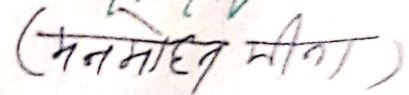 (मनमोहन मीना)